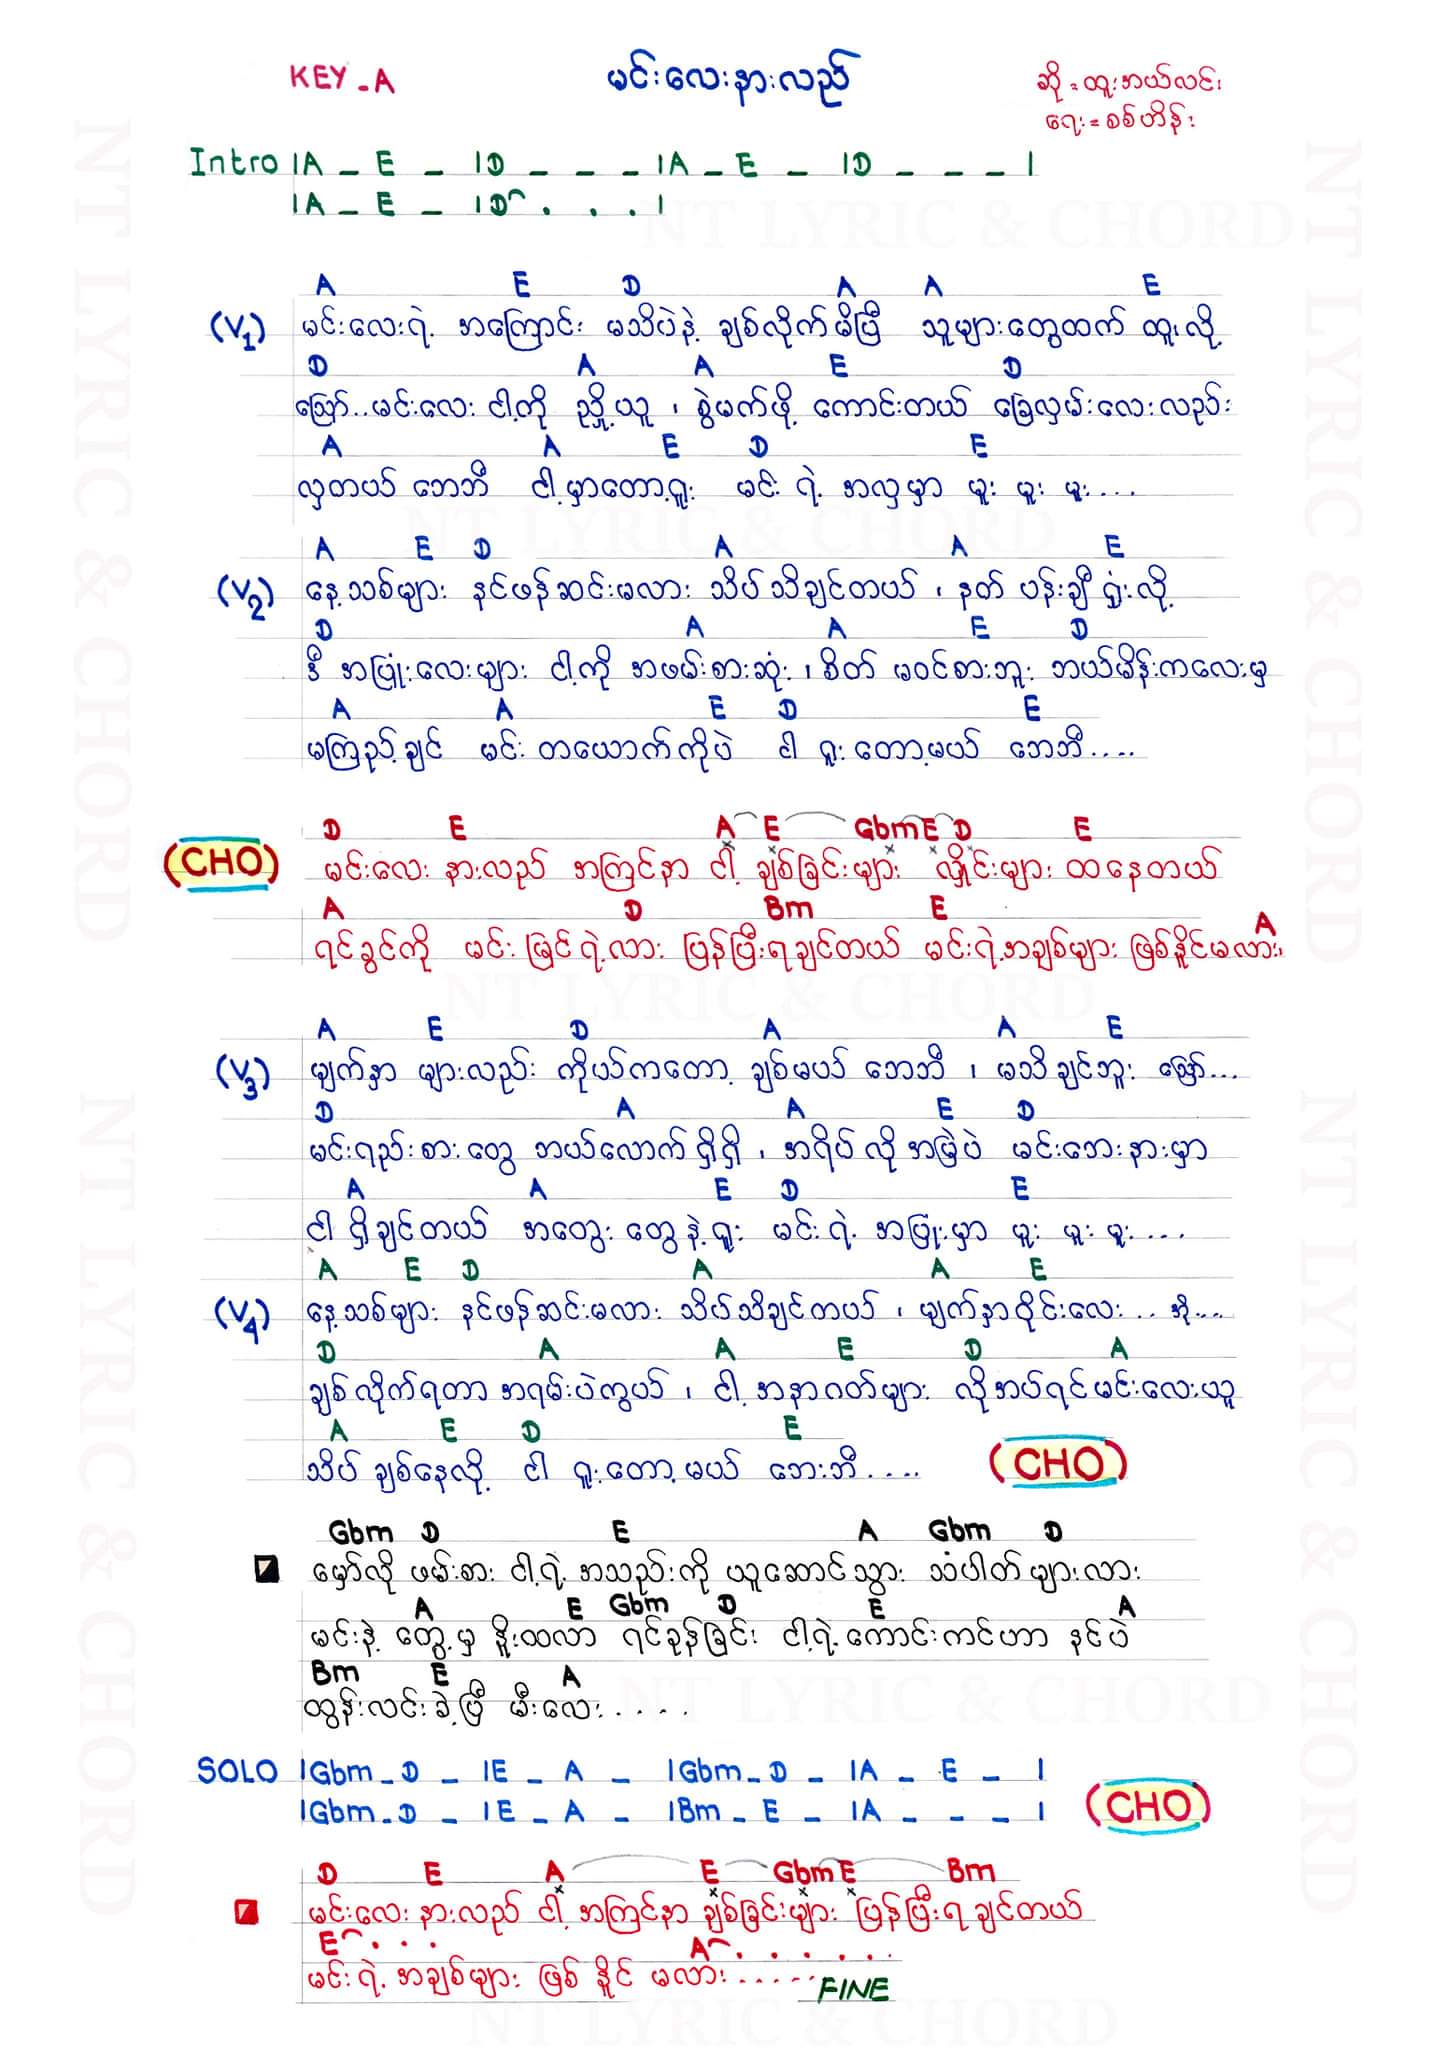 KEY - A
မင်းလေးနားလည်
ဆို = ထူးအယ်လင်း
ရေး = စစ်တိန်း
Intro |A _ E _ |D _ _ _ |A _ E _ |D _ _ _ |
|A _ E _ |D . . . |
A E D A A E
(V1) မင်းလေးရဲ့ အကြောင်း မသိပဲနဲ့ ချစ်လိုက်မိပြီ သူများတွေထက် ထူးလို့
D A A E D
သြော်.. မင်းလေး ငါ့ကို ညှို့ယူ ၊ စွဲမက်ဖို့ ကောင်းတယ် ခြေလှမ်းလေးလည်း
A A E D E
လှတယ် ဘေဘီ ငါ့မှာတော့ရူး မင်း ရဲ့ အလှမှာ မူး မူး မူး....
A E D A A E
(V2) နေ့သစ်များ နင်ဖန်ဆင်းမလား သိပ်သိချင်တယ် ၊ နတ် ပန်းချီ ရှုံးလို့
D A A E D
ဒီ အပြုံးလေးများ ငါ့ကို အဖမ်းစားဆုံး ၊ စိတ် မဝင်စားဘူး ဘယ်မိန်းကလေးမှ
A A E D E
မကြည့်ချင် မင်း တယောက်ကိုပဲ ငါ ရူးတော့မယ် ဘေဘီ....
D E A E Gbm E D E
(CHO) မင်းလေး နားလည် အကြင်နာ ငါ့ ချစ်ခြင်းများ လှိုင်းများ ထနေတယ်
A D Bm E A
ရင်ခွင်ကို မင်း မြင်ရဲ့လား ပြန်ပြီးရချင်တယ် မင်းရဲ့အချစ်များ ဖြစ်နိုင်မလား၊
A E D A A E
(V3) မျက်နှာ များလည်း ကိုယ်ကတော့ ချစ်မယ် ဘေဘီ ၊ မသိချင်ဘူး သြော်...
D A A E D
မင်းရည်းစားတွေ ဘယ်လောက်ရှိရှိ ၊ အရိပ်လို အမြဲပဲ မင်းဘေးနားမှာ
A A E D E
ငါ ရှိချင်တယ် အတွေးတွေနဲ့ရူး မင်းရဲ့ အပြုံးမှာ မူး မူး မူး....
A E D A A E
(V4) နေ့သစ်များ နင်ဖန်ဆင်းမလား သိပ်သိချင်တယ် ၊ မျက်နှာဝိုင်းလေး ..အို....
D A A E D A
ချစ်လိုက်ရတာ အရမ်းပဲကွယ် ၊ ငါ့ အနာဂတ်များ လိုအပ်ရင်မင်းလေးယူ
A E D E
သိပ် ချစ်နေလို့ ငါ ရူးတော့မယ် ဘေးဘီ.... (CHO)
Gbm D E A Gbm D
မှော်လို ဖမ်းစား ငါ့ရဲ့ အသည်းကို ယူဆောင်သွား သံပါတ်များလား
A E Gbm D E A
မင်းနဲ့ တွေ့မှ နိုးထလာ ရင်ခုန်ခြင်း ငါ့ရဲ့ကောင်းကင်ဟာ နင်ပဲ
Bm E A
ထွန်းလင်းခဲ့ပြီ မီးလေး.....
SOLO |Gbm _ D _ |E _ A _ |Gbm _ D _ |A _ E _ |
|Gbm _ D _ |E _ A _ |Bm _ E _ |A _ _ _ | (CHO)
D E A E Gbm E Bm
မင်းလေး နားလည် ငါ့ အကြင်နာ ချစ်ခြင်းများ ပြန်ပြီးရ ချင်တယ်
E . . . A . . . . . .
မင်းရဲ့ အချစ်များ ဖြစ် နိုင် မလား......
FINE
NT LYRIC & CHORD
NT LYRIC & CHORD
NT LYRIC & CHORD
NT LYRIC & CHORD
NT LYRIC & CHORD
NT LYRIC & CHORD
NT LYRIC & CHORD
NT LYRIC & CHORD
NT LYRIC & CHORD